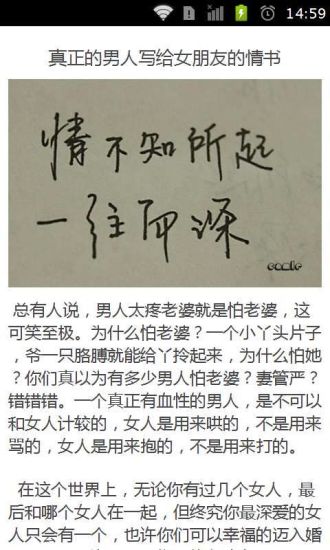 14:59
真正的男人写给女朋友的情书
情不知所起
一往而深
comic
总有人说，男人太疼老婆就是怕老婆，这
可笑至极。为什么怕老婆？一个小丫头片子
，爷一只胳膊就能给丫拎起来，为什么怕她
？你们真以为有多少男人怕老婆？妻管严？
错错错。一个真正有血性的男人，是不可以
和女人计较的，女人是用来哄的，不是用来
骂的，女人是用来抱的，不是用来打的。
在这个世界上，无论你有过几个女人，最
后和哪个女人在一起，但终究你最深爱的女
人只会有一个，也许你们可以幸福的迈入婚